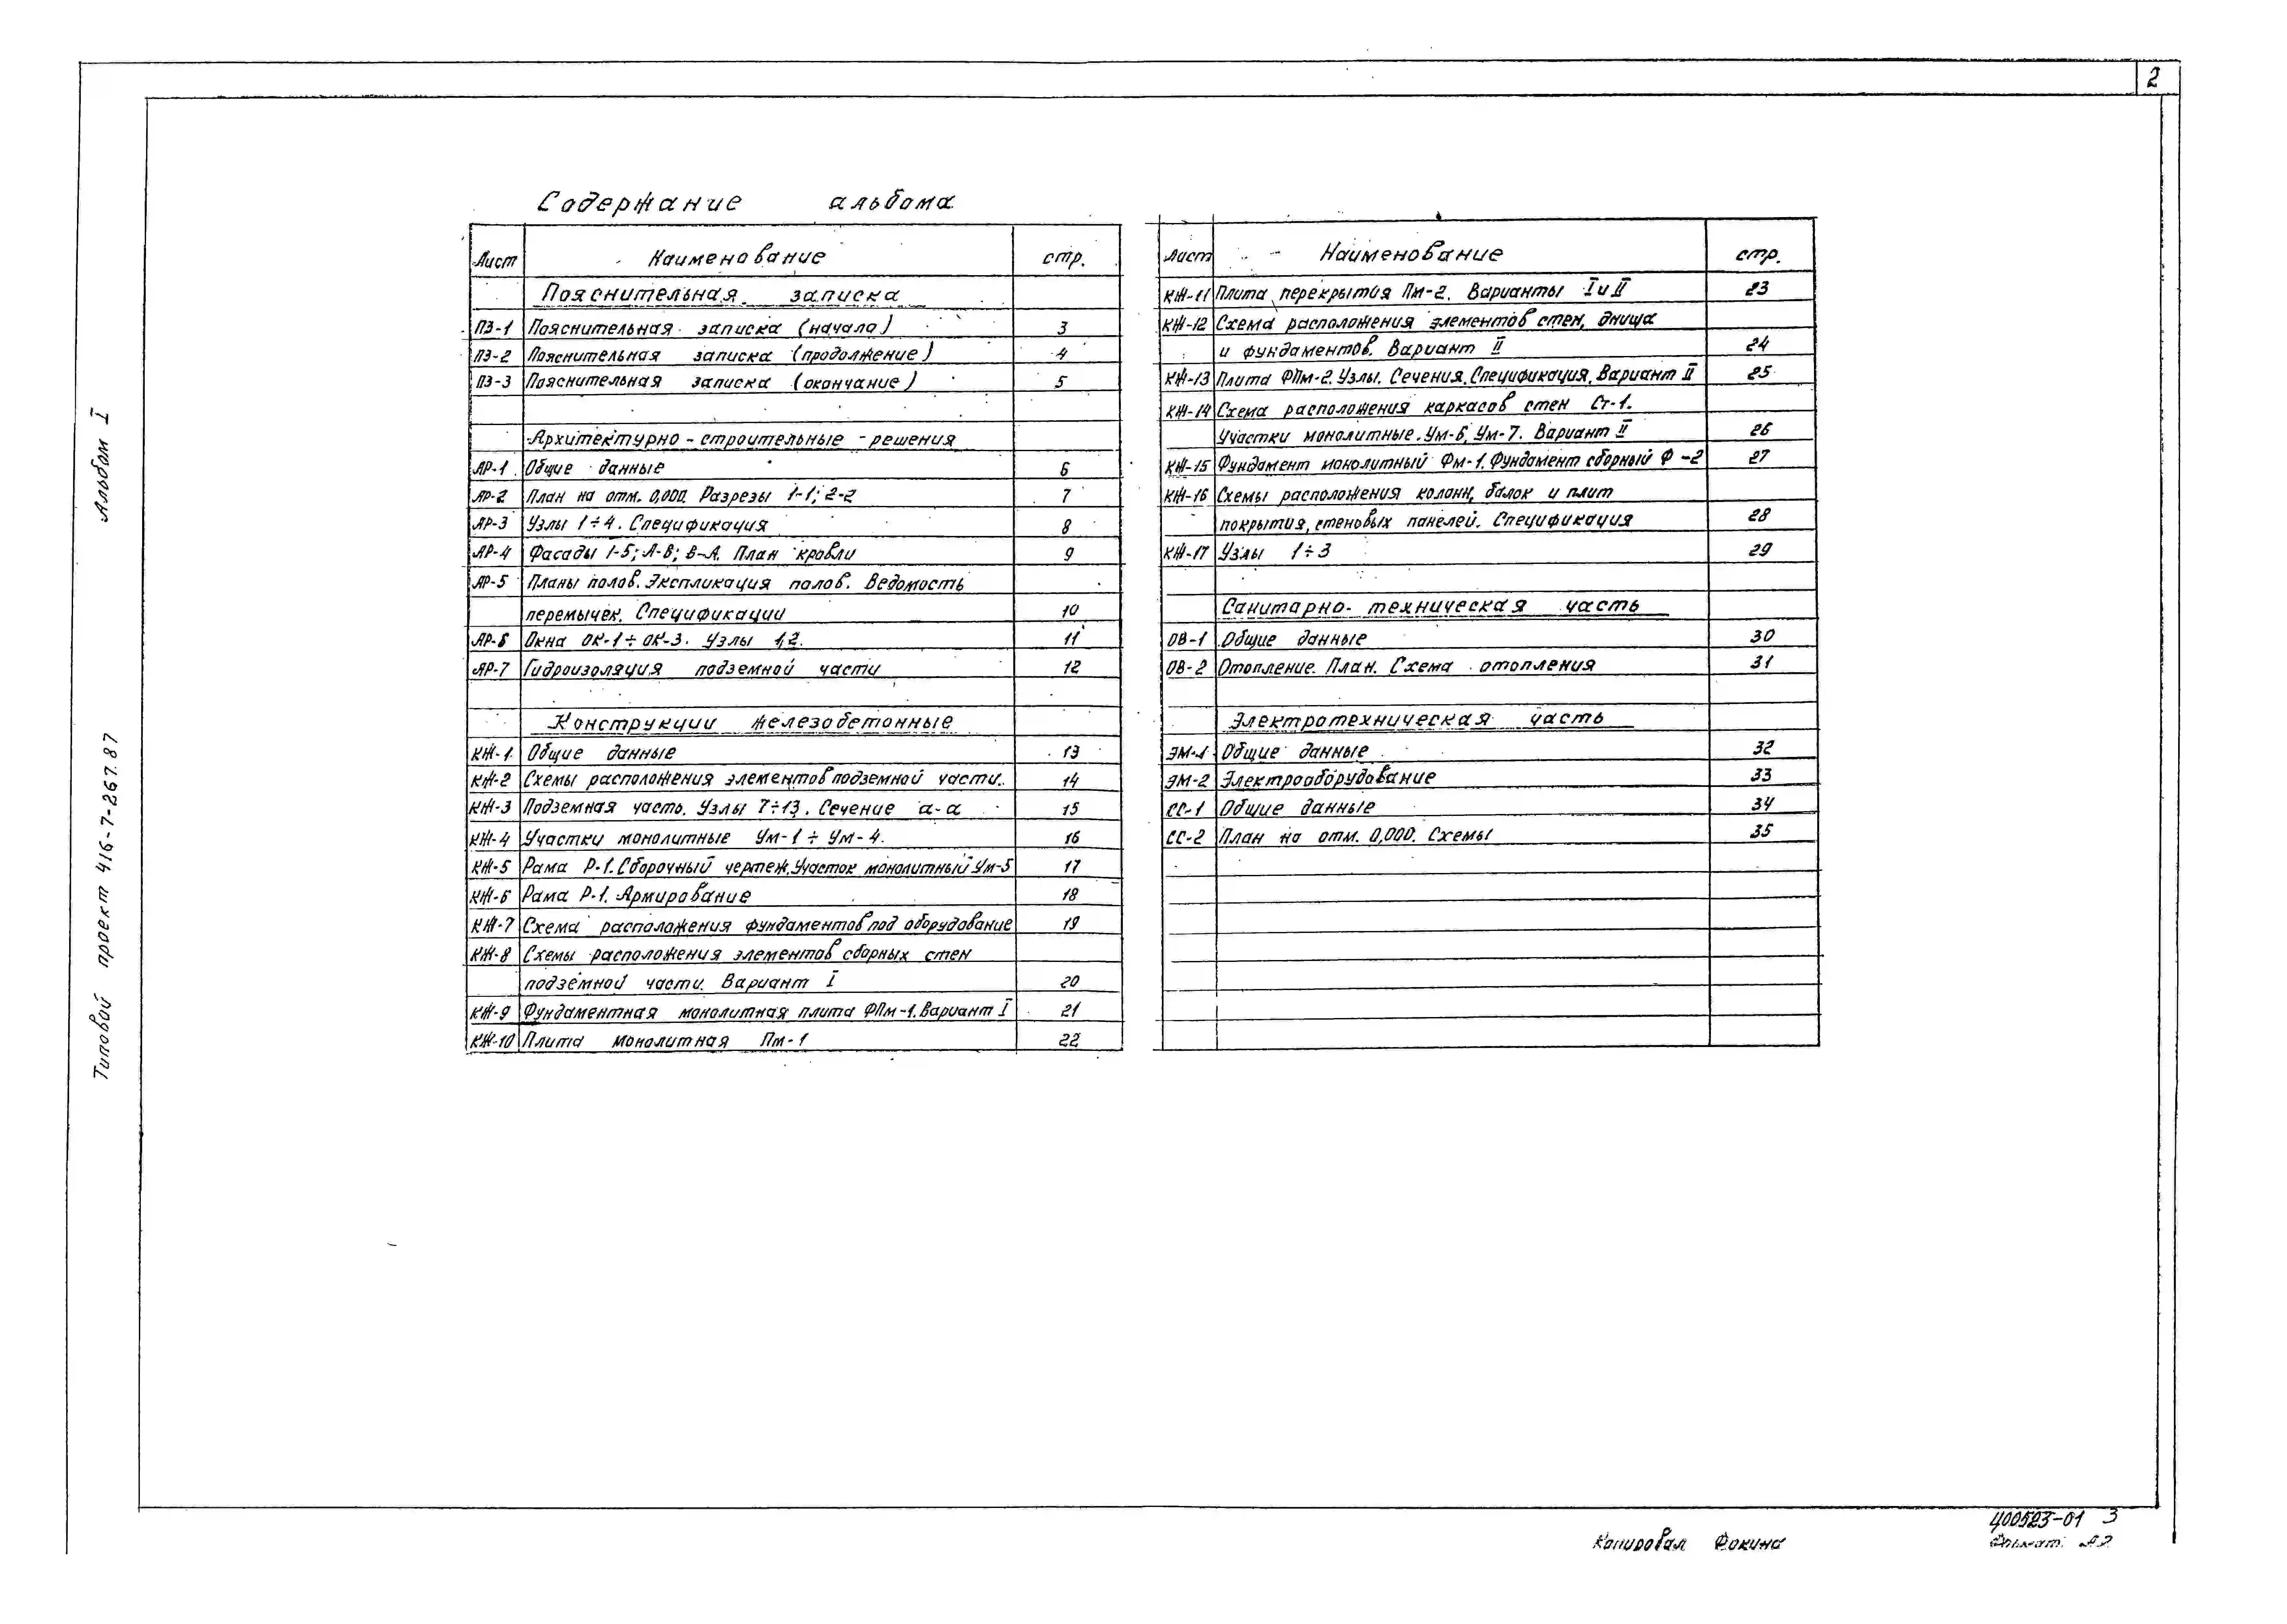 2
Содержание альбома
Лист Наименование стр.
Пояснительная записка
ПЗ-1 Пояснительная записка (начало) 3
ПЗ-2 Пояснительная записка (продолжение) 4
ПЗ-3 Пояснительная записка (окончание) 5
Архитектурно-строительные решения
АР-1 Общие данные 6
АР-2 План на отм. 0,000. Разрезы 1-1; 2-2 7
АР-3 Узлы 1÷4. Спецификация 8
АР-4 Фасады 1-5; А-В; В-А. План кровли 9
АР-5 Планы полов. Экспликация полов. Ведомость
перемычек. Спецификации 10
АР-6 Окна ОК-1÷ОК-3. Узлы 1,2. 11
АР-7 Гидроизоляция подземной части 12
Конструкции железобетонные
КЖ-1 Общие данные 13
КЖ-2 Схемы расположения элементов подземной части. 14
КЖ-3 Подземная часть. Узлы 7÷13. Сечение а-а 15
КЖ-4 Участки монолитные Ум-1÷Ум-4. 16
КЖ-5 Рама Р-1. Сборочный чертеж. Участок монолитный Ум-5 17
КЖ-6 Рама Р-1. Армирование 18
КЖ-7 Схема расположения фундаментов под оборудование 19
КЖ-8 Схемы расположения элементов сборных стен
подземной части. Вариант I 20
КЖ-9 Фундаментная монолитная плита ФПм-1. Вариант I 21
КЖ-10 Плита монолитная Пм-1 22
Лист Наименование стр.
КЖ-11 Плита перекрытия Пм-2. Варианты I и II 23
КЖ-12 Схема расположения элементов стен, днища
и фундаментов. Вариант II 24
КЖ-13 Плита ФПм-2. Узлы. Сечения. Спецификация. Вариант II 25
КЖ-14 Схема расположения каркасов стен Ст-1.
Участки монолитные. Ум-6, Ум-7. Вариант II 26
КЖ-15 Фундамент монолитный Фм-1. Фундамент сборный Ф-2 27
КЖ-16 Схемы расположения колонн, балок и плит
покрытия, стеновых панелей. Спецификация 28
КЖ-17 Узлы 1÷3 29
Санитарно-техническая часть
ОВ-1 Общие данные 30
ОВ-2 Отопление. План. Схема отопления 31
Электротехническая часть
ЭМ-1 Общие данные 32
ЭМ-2 Электрооборудование 33
СС-1 Общие данные 34
СС-2 План на отм. 0,000. Схемы 35
Типовой проект 416-7-267.87 Альбом I
Копировал Фокина
400523-01 3
Формат А2